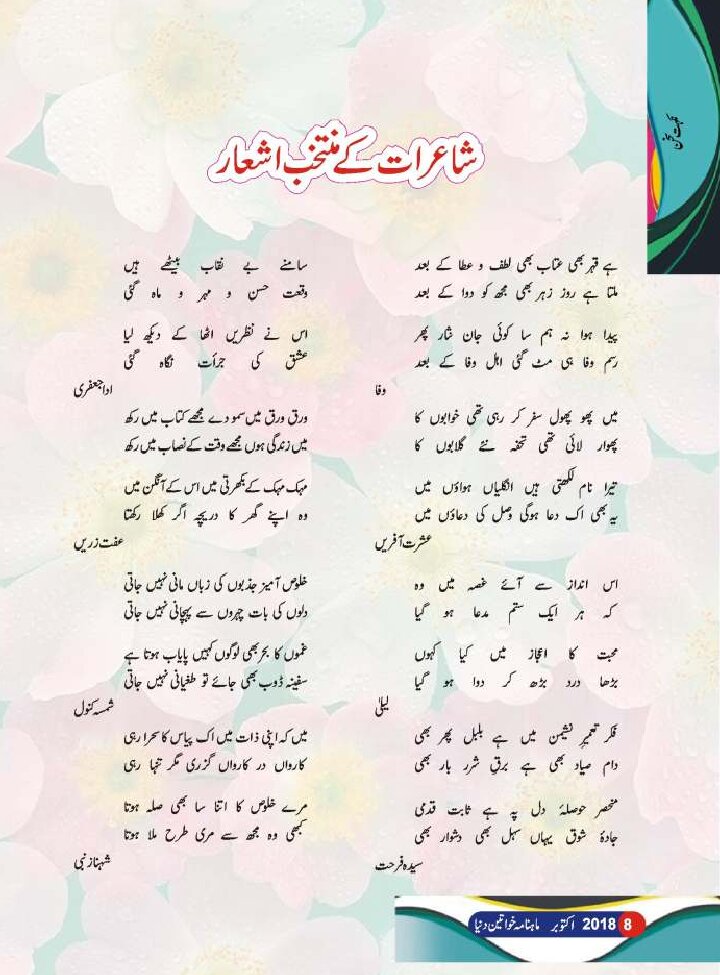 نکہت سخن
شاعرات کے منتخب اشعار
ہے قہر بھی عتاب بھی لطف و عطا کے بعد
ملتا ہے روز زہر بھی مجھ کو دوا کے بعد
پیدا ہوا نہ ہم سا کوئی جان نثار پھر
رسم وفا ہی مٹ گئی اہل وفا کے بعد
وفا
میں پھو پھول سفر کر رہی تھی خوابوں کا
پھوار لائی تھی تحفہ نئے گلابوں کا
تیرا نام لکھتی ہیں انگلیاں ہواؤں میں
یہ بھی اک دعا ہوگی وصل کی دعاؤں میں
عشرت آفریں
اس انداز سے آئے غصہ میں وہ
کہ ہر ایک ستم مدعا ہو گیا
محبت کا اعجاز میں کیا کہوں
بڑھا درد بڑھ کر دوا ہو گیا
لیلیٰ
فکر تعمیر نشیمن میں ہے بلبل پھر بھی
دام صیاد بھی ہے برق شرر بار بھی
منحصر حوصلۂ دل پہ ہے ثابت قدمی
جادۂ شوق یہاں سہل بھی دشوار بھی
سیدہ فرحت
سامنے بے نقاب بیٹھے ہیں
وقعت حسن و مہر و ماہ گئی
اس نے نظریں اٹھا کے دیکھ لیا
عشق کی جرأت نگاہ گئی
ادا جعفری
ورق ورق میں سمو دے مجھے کتاب میں رکھ
میں زندگی ہوں مجھے وقت کے نصاب میں رکھ
مہک مہک کے بکھرتی میں اس کے آنگن میں
وہ اپنے گھر کا دریچہ اگر کھلا رکھتا
عفت زریں
خلوص آمیز جذبوں کی زباں مانی نہیں جاتی
دلوں کی بات چہروں سے پہچانی نہیں جاتی
غموں کا بحر بھی لوگوں کہیں پایاب ہوتا ہے
سفینہ ڈوب بھی جائے تو طغیانی نہیں جاتی
شمسہ کنول
میں کہ اپنی ذات میں اک پیاس کا سحرا رہی
کارواں در کارواں گزری مگر تنہا رہی
مرے خلوص کا اتنا سا بھی صلہ ہوتا
کبھی وہ مجھ سے مری طرح ملا ہوتا
شہناز نبی
ماہنامہ خواتین دنیا اکتوبر 2018 8